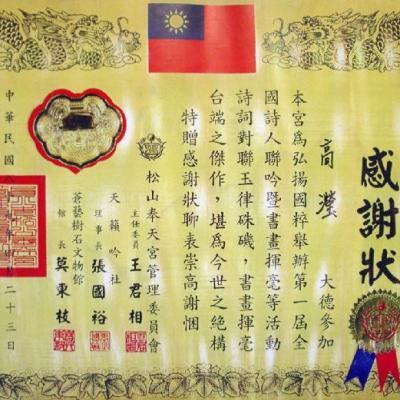 感謝狀
高瀅 大德參加
本宮為弘揚國粹舉辦第一屆全
國詩人聯吟暨書畫揮毫等活動
詩詞對聯玉律硃磯，書畫揮毫
台端之傑作，堪為今世之絕構
特贈感謝狀聊表崇高謝悃
松山奉天宮管理委員會
主任委員 王君相
天籟吟社
理事長 張國裕
蒼藝樹石文物館
館長 莫東枝
中華民國八十九年 二十三日